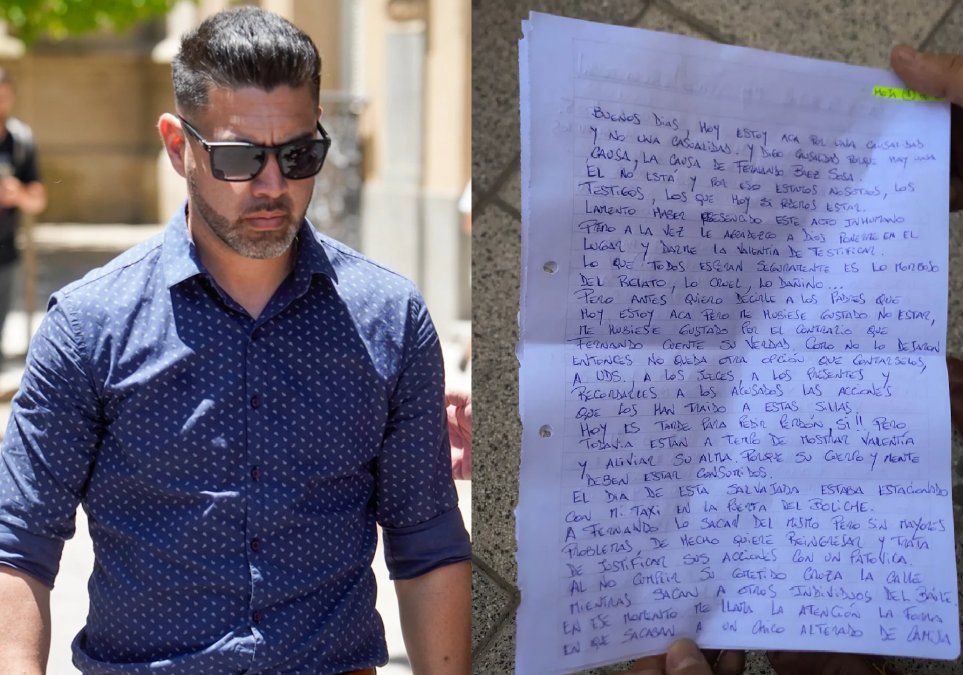 HOJA (1)
BUENOS DIAS, HOY ESTOY ACA POR UNA CAUSALIDAD
Y NO UNA CASUALIDAD. Y DIGO CAUSALIDAD PORQUE HAY UNA
CAUSA, LA CAUSA DE FERNANDO BAEZ SOSA.
EL NO ESTÁ Y POR ESO ESTAMOS NOSOTROS, LOS
TESTIGOS, LOS QUE HOY SI PODEMOS ESTAR.
LAMENTO HABER PRESENCIADO ESTE ACTO INHUMANO
PERO A LA VEZ LE AGRADEZCO A DIOS PONERME EN EL
LUGAR Y DARME LA VALENTIA DE TESTIFICAR.
LO QUE TODOS ESPERAN SEGURAMENTE ES LO MORBOSO
DEL RELATO, LO CRUEL, LO DAÑINO...
PERO ANTES QUIERO DECIRLE A LOS PADRES QUE
HOY ESTOY ACA PERO ME HUBIESE GUSTADO NO ESTAR,
ME HUBIESE GUSTADO POR EL CONTRARIO QUE
FERNANDO CUENTE SU VERDAD. COMO NO LO DEJARON
ENTONCES NO QUEDA OTRA OPCIÓN QUE CONTARSELOS,
A UDS., A LOS JUECES, A LOS PRESENTES Y
RECORDARLES A LOS ACUSADOS LAS ACCIONES
QUE LOS HAN TRAIDO A ESTAS SILLAS.
HOY ES TARDE PARA PEDIR PERDÓN, SI!! PERO
TODAVIA ESTÁN A TIEMPO DE MOSTRAR VALENTÍA
Y ALIVIAR SU ALMA. PORQUE SU CUERPO Y MENTE
DEBEN ESTAR CONSUMIDOS.
EL DIA DE ESTA SALVAJADA ESTABA ESTACIONADO
CON MI TAXI EN LA PUERTA DEL BOLICHE.
A FERNANDO LO SACAN DEL MISMO PERO SIN MAYORES
PROBLEMAS, DE HECHO QUIERE REINGRESAR Y TRATA
DE JUSTIFICAR SUS ACCIONES CON UN PATOVICA.
AL NO CUMPLIR SU COMETIDO CRUZA LA CALLE
MIENTRAS SACAN A OTROS INDIVIDUOS DEL BAILE.
EN ESE MOMENTO ME LLAMA LA ATENCIÓN LA FORMA
EN QUE SACABAN A UN CHICO ALTERADO DE CAMISA